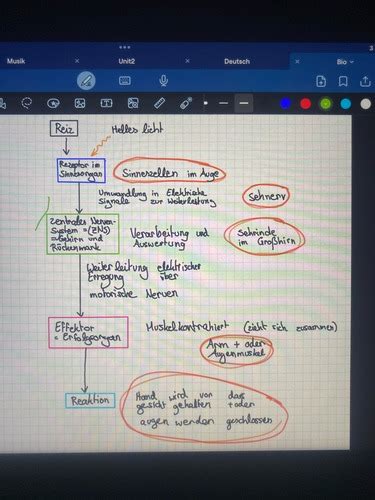 3
Musik
Unit2
Deutsch
Bio
Reiz
Helles licht
Rezeptor im
Sinnesorgan
Sinneszellen im Auge
Umwandlung in Elektrische
Signale zur Weiterleitung
Sehnerv
Zentrales Nerven-
System =(ZNS)
=Gehirn und
Rückenmark
Verarbeitung und
Auswertung
Sehrinde
im Großhirn
Weiterleitung elektrischer
Erregung über
motorische Nerven
Effektor
= Erfolgsorgan
Muskelkontrahiert (zieht sich zusammen)
Arm + oder
Augenmuskel
Reaktion
Hand wird vor das
gesicht gehalten +oder
augen werden geschlossen